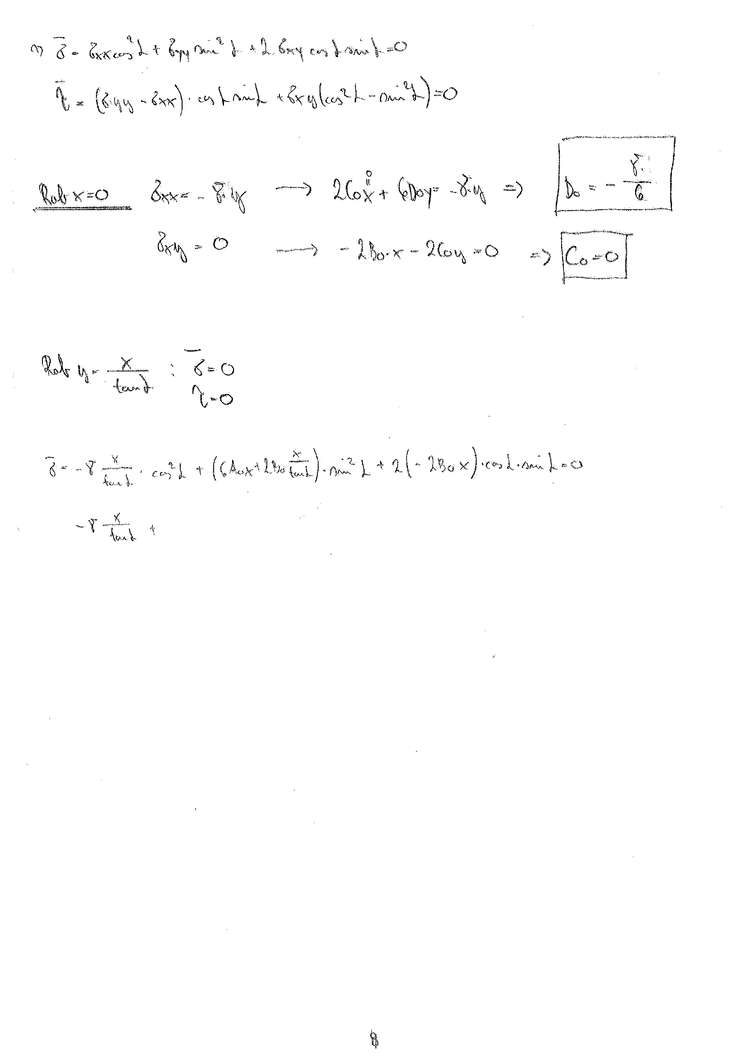 1) σ̄ = σxx cos²α + σyy sin²α + 2·σxy cosα sinα = 0
τ̄ = (σyy - σxx)·cosα sinα + σxy(cos²α - sin²α) = 0
Rob x=0 σxx = -γ·y → 2C₀x⁰ + 6D₀y = -γ·y => D₀ = -γ/6
σxy = 0 → -2B₀·x - 2C₀y = 0 => C₀=0
Rob y = x/tanα : σ̄=0
τ=0
σ̄ = -γ x/tanα · cos²α + (6A₀x + 2B₀ x/tanα)·sin²α + 2(-2B₀x)·cosα·sinα = 0
-γ x/tanα +
8